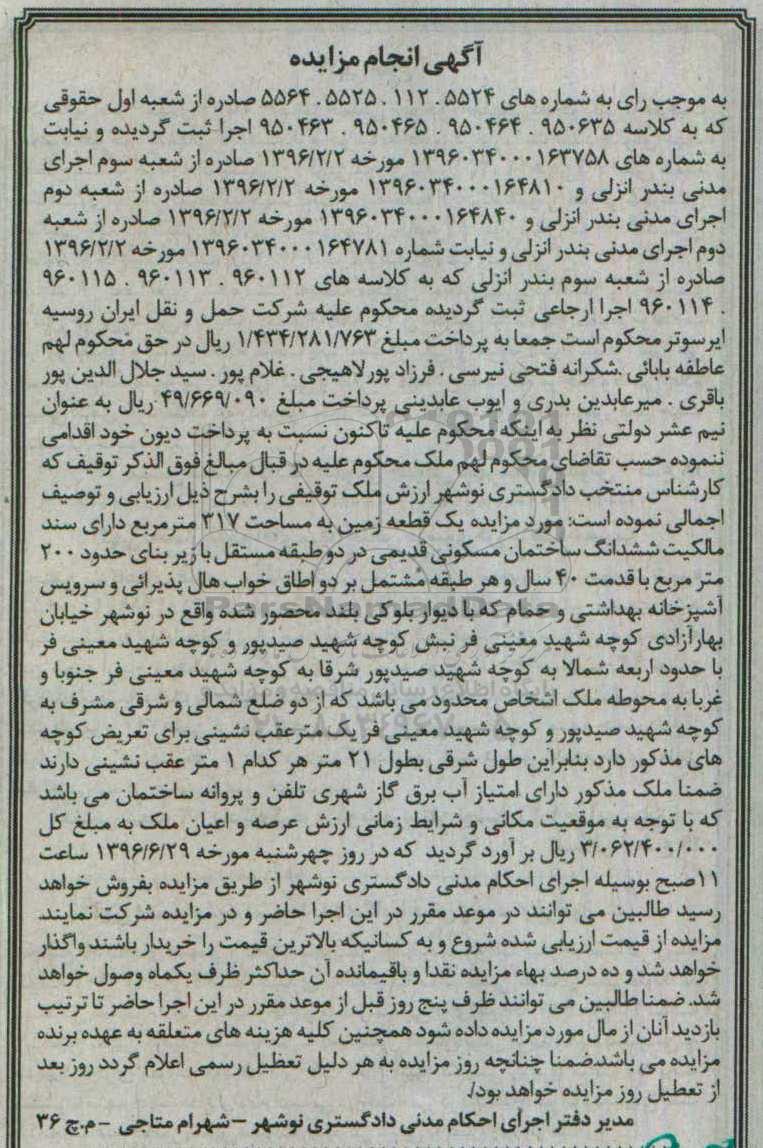 آگهی انجام مزایده
به موجب رای به شماره های ۵۵۲۴ . ۱۱۲ . ۵۵۲۵ . ۵۵۶۴ صادره از شعبه اول حقوقی
که به کلاسه ۹۵۰۶۳۵ . ۹۵۰۴۶۴ . ۹۵۰۴۶۵ . ۹۵۰۴۶۳ اجرا ثبت گردیده و نیابت
به شماره های ۱۳۹۶۰۳۴۰۰۰۱۶۳۷۵۸ مورخه ۱۳۹۶/۲/۲ صادره از شعبه سوم اجرای
مدنی بندر انزلی و ۱۳۹۶۰۳۴۰۰۰۱۶۴۸۱۰ مورخه ۱۳۹۶/۲/۲ صادره از شعبه دوم
اجرای مدنی بندر انزلی و ۱۳۹۶۰۳۴۰۰۰۱۶۴۸۴۰ مورخه ۱۳۹۶/۲/۲ صادره از شعبه
دوم اجرای مدنی بندر انزلی و نیابت شماره ۱۳۹۶۰۳۴۰۰۰۱۶۴۷۸۱ مورخه ۱۳۹۶/۲/۲
صادره از شعبه سوم بندر انزلی که به کلاسه های ۹۶۰۱۱۲ . ۹۶۰۱۱۳ . ۹۶۰۱۱۵
. ۹۶۰۱۱۴ اجرا ارجاعی ثبت گردیده محکوم علیه شرکت حمل و نقل ایران روسیه
ایرسوتر محکوم است جمعا به پرداخت مبلغ ۱/۴۳۴/۲۸۱/۷۶۳ ریال در حق محکوم لهم
عاطفه بابائی .شکرانه فتحی نیرسی . فرزاد پورلاهیجی . غلام پور . سید جلال الدین پور
باقری . میرعابدین بدری و ایوب عابدینی پرداخت مبلغ ۴۹/۶۶۹/۰۹۰ ریال به عنوان
نیم عشر دولتی نظر به اینکه محکوم علیه تاکنون نسبت به پرداخت دیون خود اقدامی
ننموده حسب تقاضای محکوم لهم ملک محکوم علیه در قبال مبالغ فوق الذکر توقیف که
کارشناس منتخب دادگستری نوشهر ارزش ملک توقیفی را بشرح ذیل ارزیابی و توصیف
اجمالی نموده است: مورد مزایده یک قطعه زمین به مساحت ۳۱۷ مترمربع دارای سند
مالکیت ششدانگ ساختمان مسکونی قدیمی در دو طبقه مستقل با زیر بنای حدود ۲۰۰
متر مربع با قدمت ۴۰ سال و هر طبقه مشتمل بر دو اطاق خواب هال پذیرائی و سرویس
آشپزخانه بهداشتی و حمام که با دیوار بلوکی بلند محصور شده واقع در نوشهر خیابان
بهارآزادی کوچه شهید معینی فر نبش کوچه شهید صیدپور و کوچه شهید معینی فر
با حدود اربعه شمالا به کوچه شهید صیدپور شرقا به کوچه شهید معینی فر جنوبا و
غربا به محوطه ملک اشخاص محدود می باشد که از دو ضلع شمالی و شرقی مشرف به
کوچه شهید صیدپور و کوچه شهید معینی فر یک مترعقب نشینی برای تعریض کوچه
های مذکور دارد بنابراین طول شرقی بطول ۲۱ متر هر کدام ۱ متر عقب نشینی دارند
ضمنا ملک مذکور دارای امتیاز آب برق گاز شهری تلفن و پروانه ساختمان می باشد
که با توجه به موقعیت مکانی و شرایط زمانی ارزش عرصه و اعیان ملک به مبلغ کل
۳/۰۶۲/۴۰۰/۰۰۰ ریال بر آورد گردید که در روز چهرشنبه مورخه ۱۳۹۶/۶/۲۹ ساعت
۱۱صبح بوسیله اجرای احکام مدنی دادگستری نوشهر از طریق مزایده بفروش خواهد
رسید طالبین می توانند در موعد مقرر در این اجرا حاضر و در مزایده شرکت نمایند.
مزایده از قیمت ارزیابی شده شروع و به کسانیکه بالاترین قیمت را خریدار باشند واگذار
خواهد شد و ده درصد بهاء مزایده نقدا و باقیمانده آن حداکثر ظرف یکماه وصول خواهد
شد. ضمنا طالبین می توانند ظرف پنج روز قبل از موعد مقرر در این اجرا حاضر تا ترتیب
بازدید آنان از مال مورد مزایده داده شود همچنین کلیه هزینه های متعلقه به عهده برنده
مزایده می باشد.ضمنا چنانچه روز مزایده به هر دلیل تعظیل رسمی اعلام گردد روز بعد
از تعطیل روز مزایده خواهد بود/.
مدیر دفتر اجرای احکام مدنی دادگستری نوشهر – شهرام متاجی - م.چ ۳۶